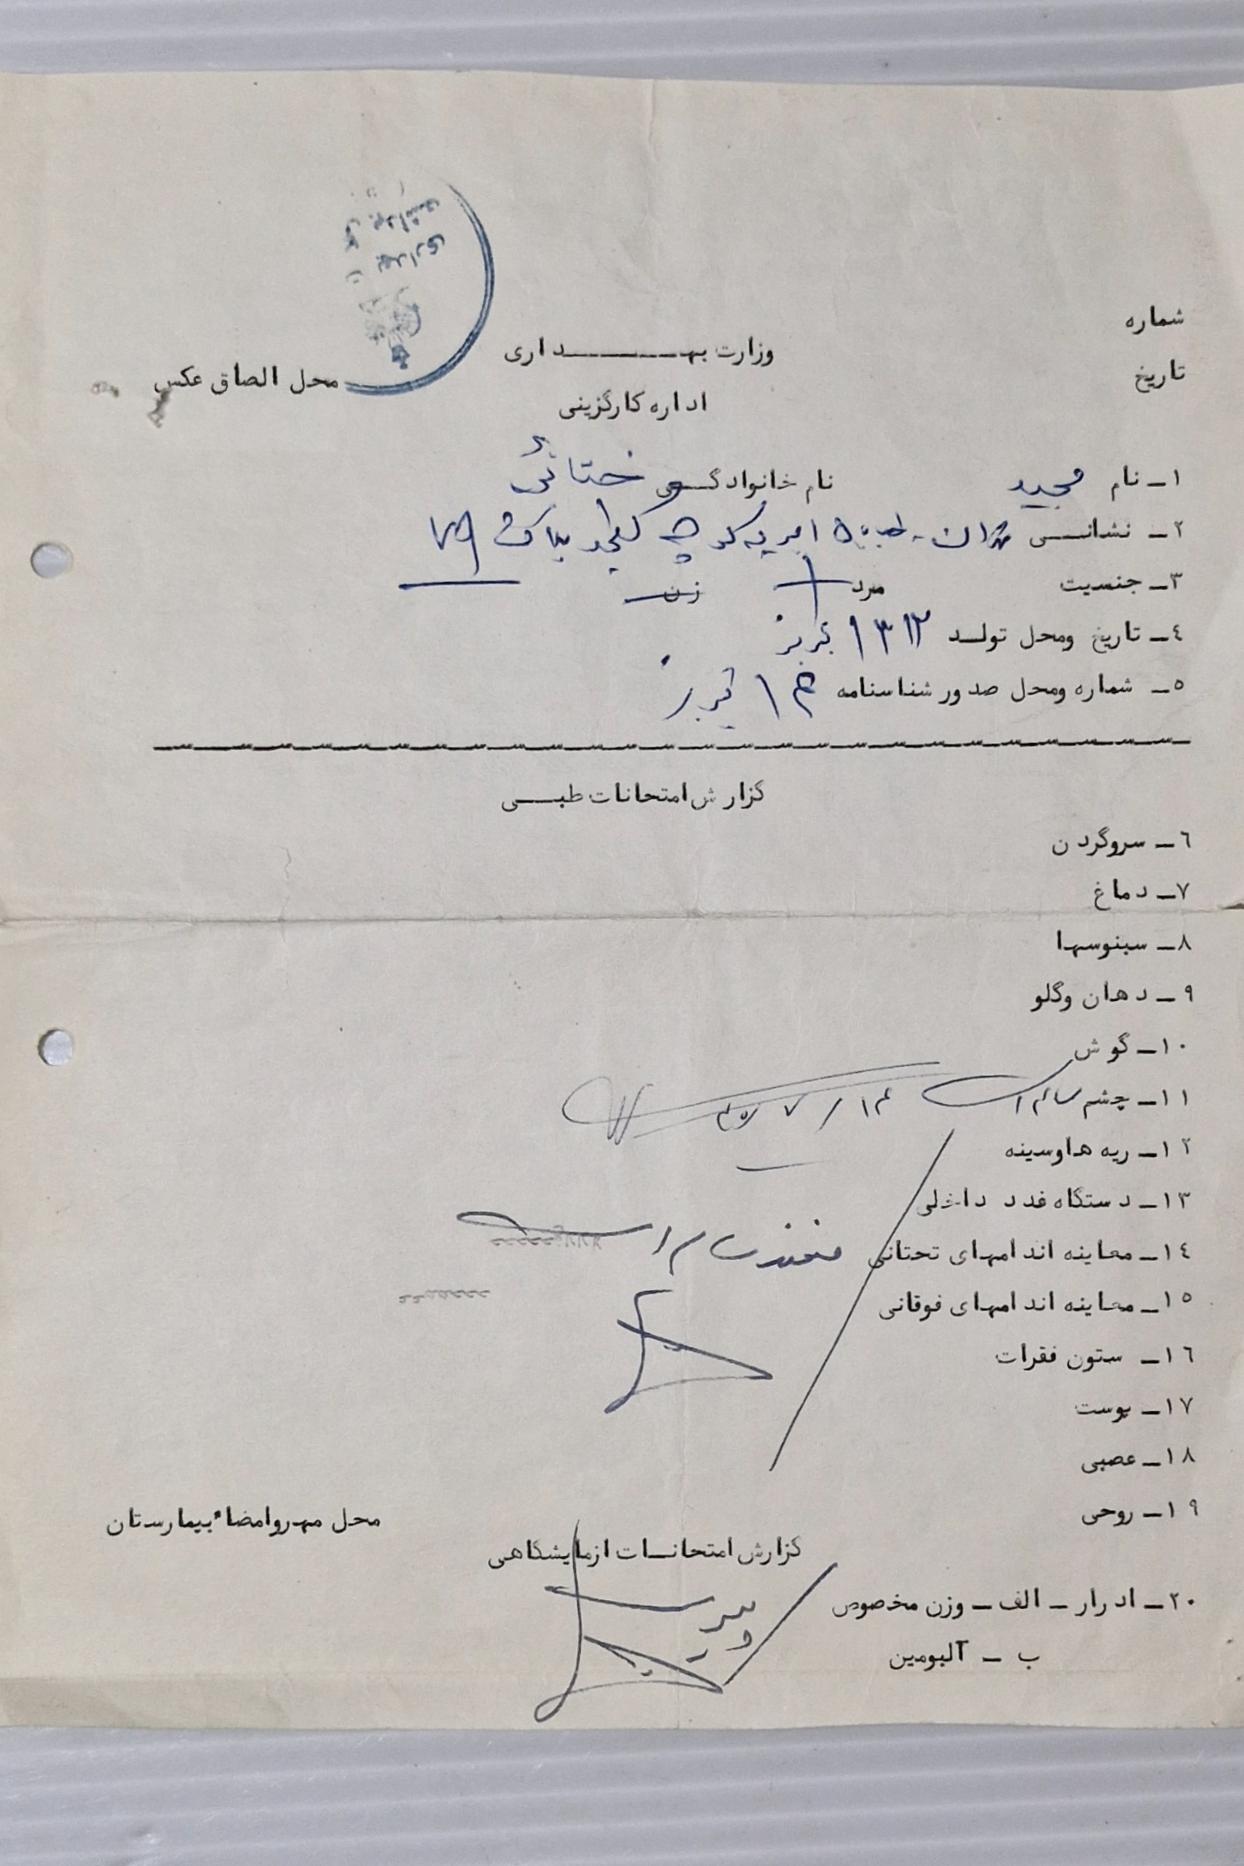 شماره
تاریخ
بهداری
وزارت بهداری
محل الصاق عکس
اداره کارگزینی
۱ـ نام مجید نام خانوادگی ختائی
۲ـ نشانی تهران - امیریه کوچه پلاک ۷۹
۳ـ جنسیت مرد زن
٤ـ تاریخ ومحل تولد ۱۳۱۲ تبریز
٥ـ شماره ومحل صدور شناسنامه تبریز
گزارش امتحانات طبی
٦ـ سروگردن
۷ـ دماغ
۸ـ سینوسها
۹ـ دهان وگلو
۱۰ـ گوش
۱۱ـ چشم سالم است
۱۲ـ ریه هاوسینه
۱۳ـ دستگاه غدد داخلی
۱٤ـ معاینه اندامهای تحتانی سالم است
۱٥ـ معاینه اندامهای فوقانی
۱٦ـ ستون فقرات
۱۷ـ پوست
۱۸ـ عصبی
۱۹ـ روحی
محل مهروامضاء بیمارستان
گزارش امتحانات ازمایشگاهی
۲۰ـ ادرار ـ الف ـ وزن مخصوص
ب ـ آلبومین